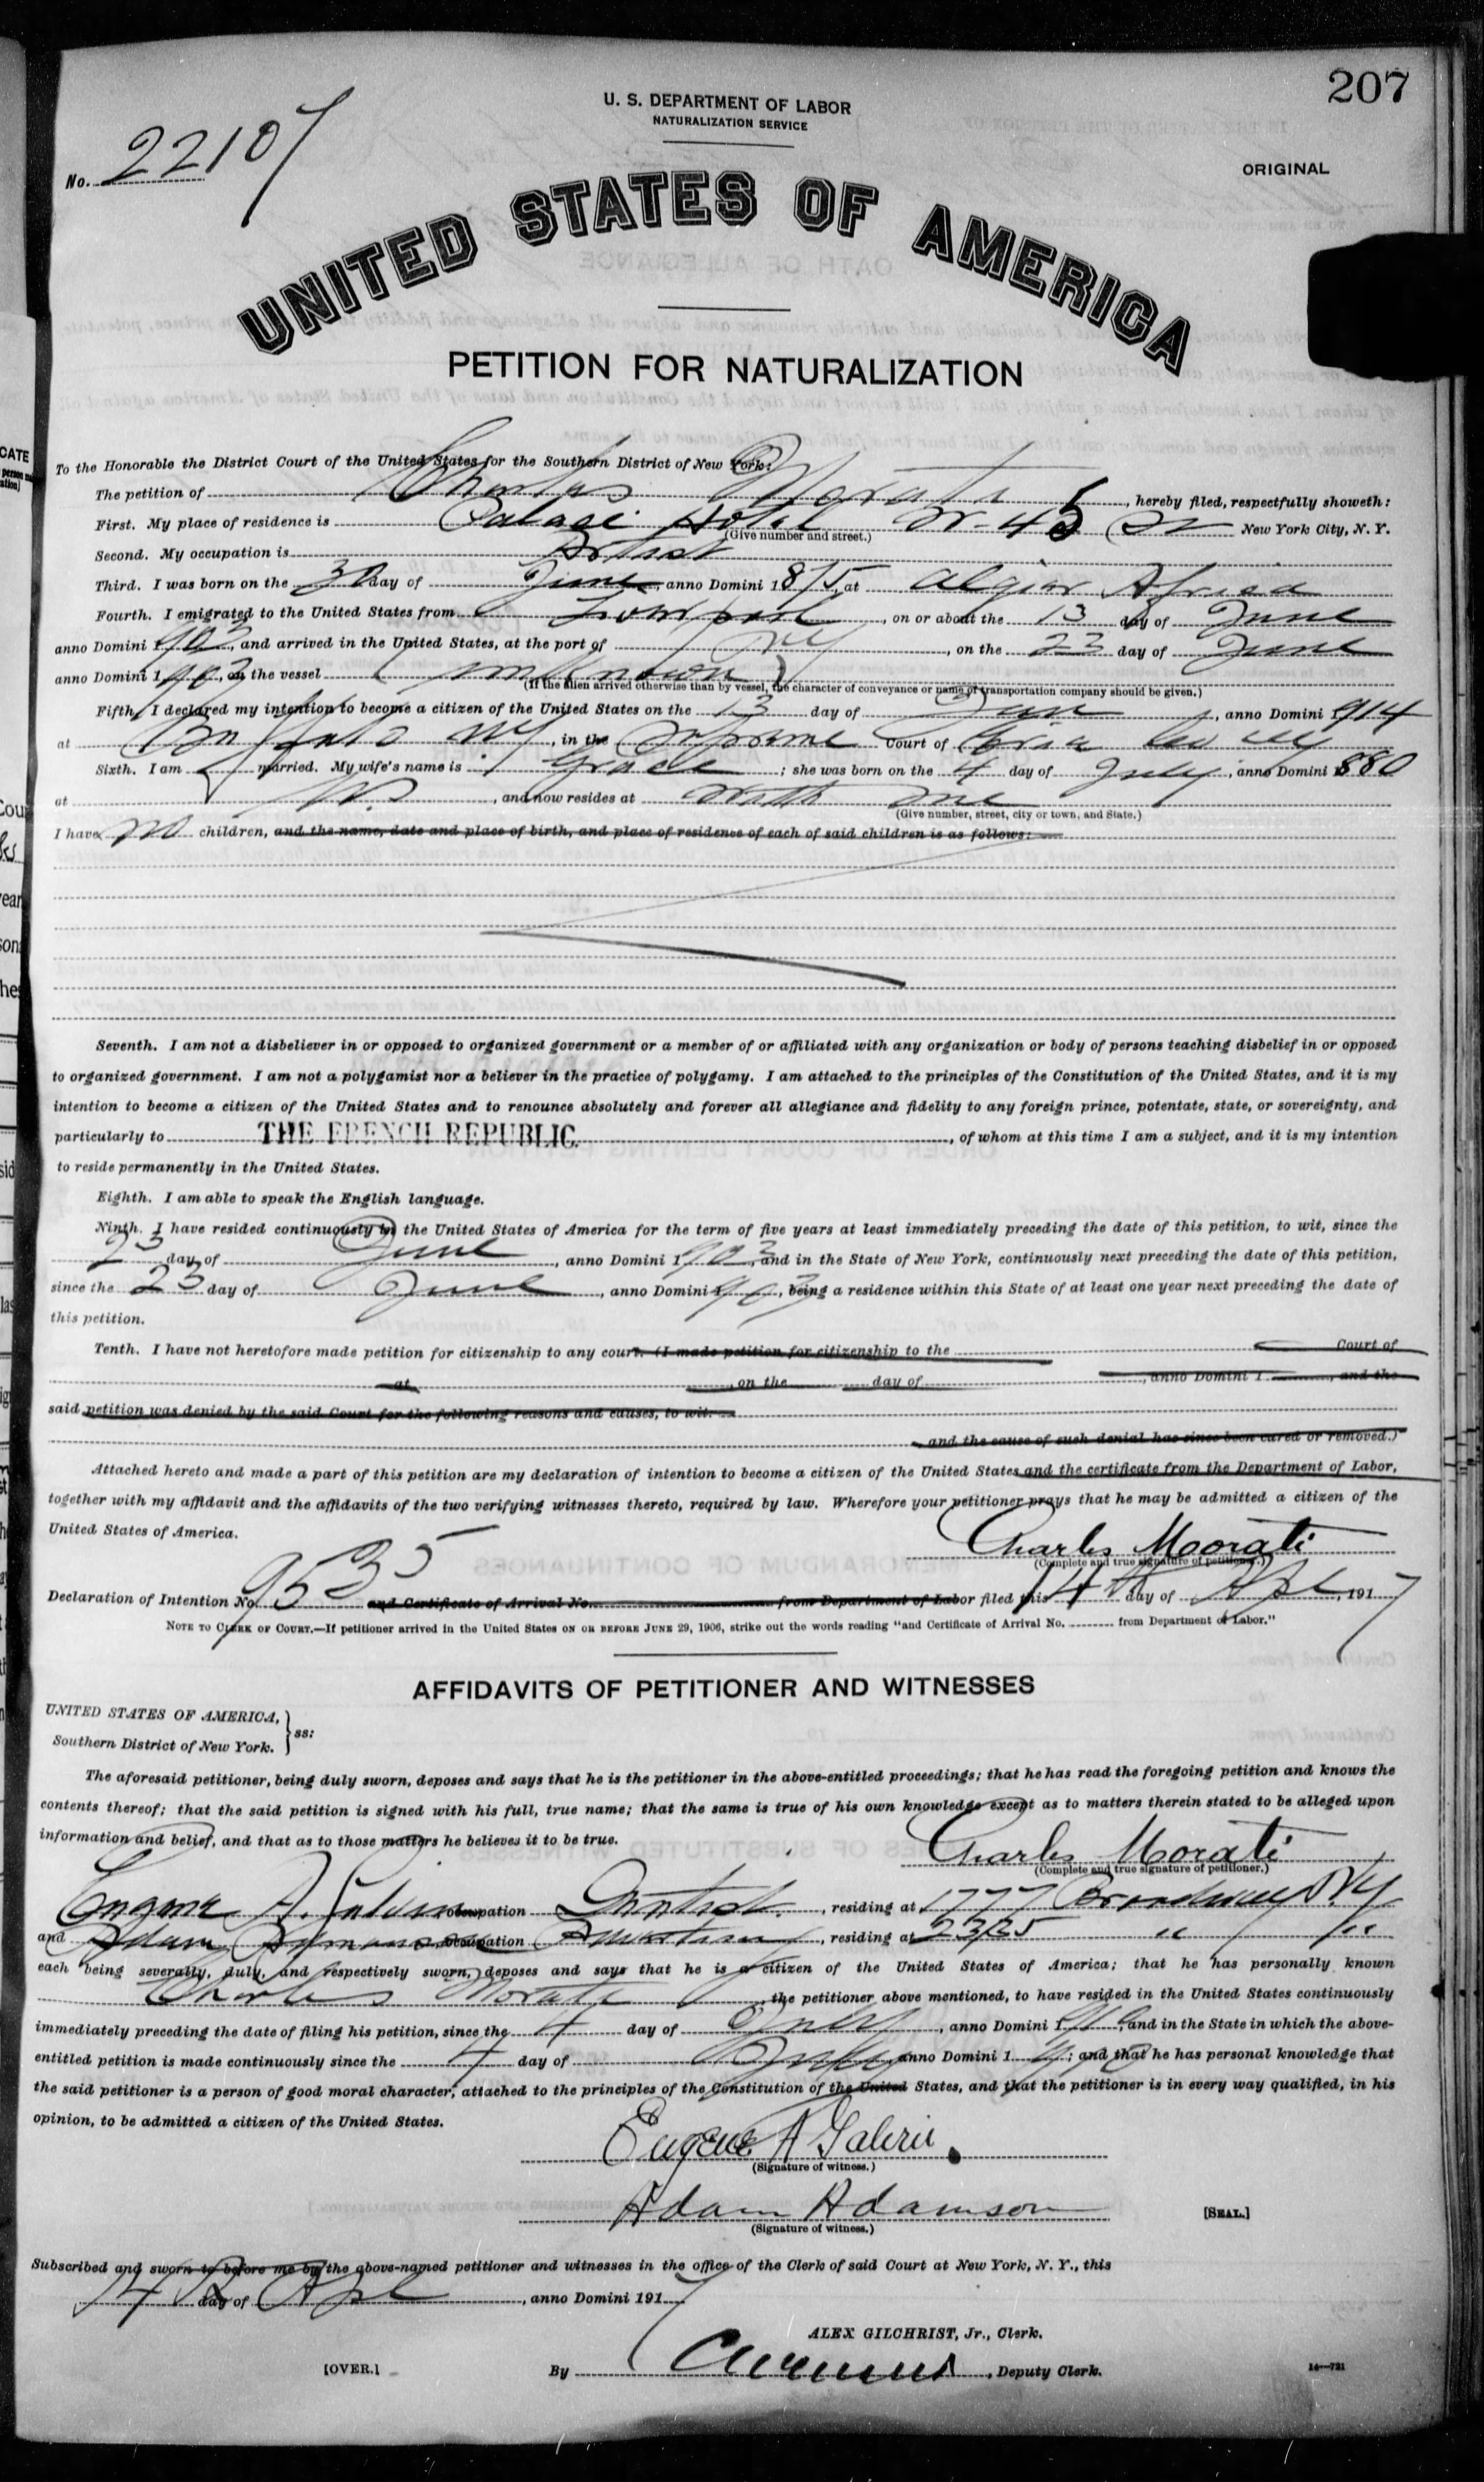 207
U. S. DEPARTMENT OF LABOR
NATURALIZATION SERVICE
No. 22107
ORIGINAL
UNITED STATES OF AMERICA
PETITION FOR NATURALIZATION
To the Honorable the District Court of the United States for the Southern District of New York:
The petition of Charles Morati, hereby filed, respectfully showeth:
First. My place of residence is Palace Hotel W. 45 St New York City, N. Y.
(Give number and street.)
Second. My occupation is Artist
Third. I was born on the 30 day of June, anno Domini 1875, at Algier Africa
Fourth. I emigrated to the United States from Liverpool, on or about the 13 day of June
anno Domini 1903, and arrived in the United States, at the port of NY, on the 23 day of June
anno Domini 1903, on the vessel (unknown)
(If the alien arrived otherwise than by vessel, the character of conveyance or name of transportation company should be given.)
Fifth. I declared my intention to become a citizen of the United States on the 13 day of Jan, anno Domini 1914
at Buffalo NY, in the Supreme Court of Erie Co NY
Sixth. I am married. My wife's name is Grace; she was born on the 4 day of July, anno Domini 1880
at , and now resides at with me
(Give number, street, city or town, and State.)
I have no children, and the name, date and place of birth, and place of residence of each of said children is as follows:
Seventh. I am not a disbeliever in or opposed to organized government or a member of or affiliated with any organization or body of persons teaching disbelief in or opposed
to organized government. I am not a polygamist nor a believer in the practice of polygamy. I am attached to the principles of the Constitution of the United States, and it is my
intention to become a citizen of the United States and to renounce absolutely and forever all allegiance and fidelity to any foreign prince, potentate, state, or sovereignty, and
particularly to THE FRENCH REPUBLIC, of whom at this time I am a subject, and it is my intention
to reside permanently in the United States.
Eighth. I am able to speak the English language.
Ninth. I have resided continuously in the United States of America for the term of five years at least immediately preceding the date of this petition, to wit, since the
23 day of June, anno Domini 1903, and in the State of New York, continuously next preceding the date of this petition,
since the 23 day of June, anno Domini 1903, being a residence within this State of at least one year next preceding the date of
this petition.
Tenth. I have not heretofore made petition for citizenship to any court. (I made petition for citizenship to the Court of
at , on the day of , anno Domini 1 , and the
said petition was denied by the said Court for the following reasons and causes, to wit:
and the cause of such denial has since been cured or removed.)
Attached hereto and made a part of this petition are my declaration of intention to become a citizen of the United States and the certificate from the Department of Labor,
together with my affidavit and the affidavits of the two verifying witnesses thereto, required by law. Wherefore your petitioner prays that he may be admitted a citizen of the
United States of America.
Charles Morati
(Complete and true signature of petitioner.)
Declaration of Intention No. 9535 and Certificate of Arrival No. from Department of Labor filed this 14th day of Apl, 1917
NOTE TO CLERK OF COURT.—If petitioner arrived in the United States ON OR BEFORE JUNE 29, 1906, strike out the words reading "and Certificate of Arrival No. from Department of Labor."
AFFIDAVITS OF PETITIONER AND WITNESSES
UNITED STATES OF AMERICA,
Southern District of New York. } ss:
The aforesaid petitioner, being duly sworn, deposes and says that he is the petitioner in the above-entitled proceedings; that he has read the foregoing petition and knows the
contents thereof; that the said petition is signed with his full, true name; that the same is true of his own knowledge except as to matters therein stated to be alleged upon
information and belief, and that as to those matters he believes it to be true.
Charles Morati
(Complete and true signature of petitioner.)
Eugene A. occupation Dentist, residing at 1777 Broadway NY
and Adam occupation , residing at " "
each being severally, duly, and respectively sworn, deposes and says that he is a citizen of the United States of America; that he has personally known
Charles Morati, the petitioner above mentioned, to have resided in the United States continuously
immediately preceding the date of filing his petition, since the 4 day of July, anno Domini 1910, and in the State in which the above-
entitled petition is made continuously since the 4 day of July, anno Domini 1910; and that he has personal knowledge that
the said petitioner is a person of good moral character, attached to the principles of the Constitution of the United States, and that the petitioner is in every way qualified, in his
opinion, to be admitted a citizen of the United States.
Eugene A
(Signature of witness.)
Adam Adamson
(Signature of witness.)
[SEAL.]
Subscribed and sworn to before me by the above-named petitioner and witnesses in the office of the Clerk of said Court at New York, N. Y., this
14th day of Apl, anno Domini 1917
ALEX GILCHRIST, Jr., Clerk.
[OVER.]
By , Deputy Clerk.
14—721